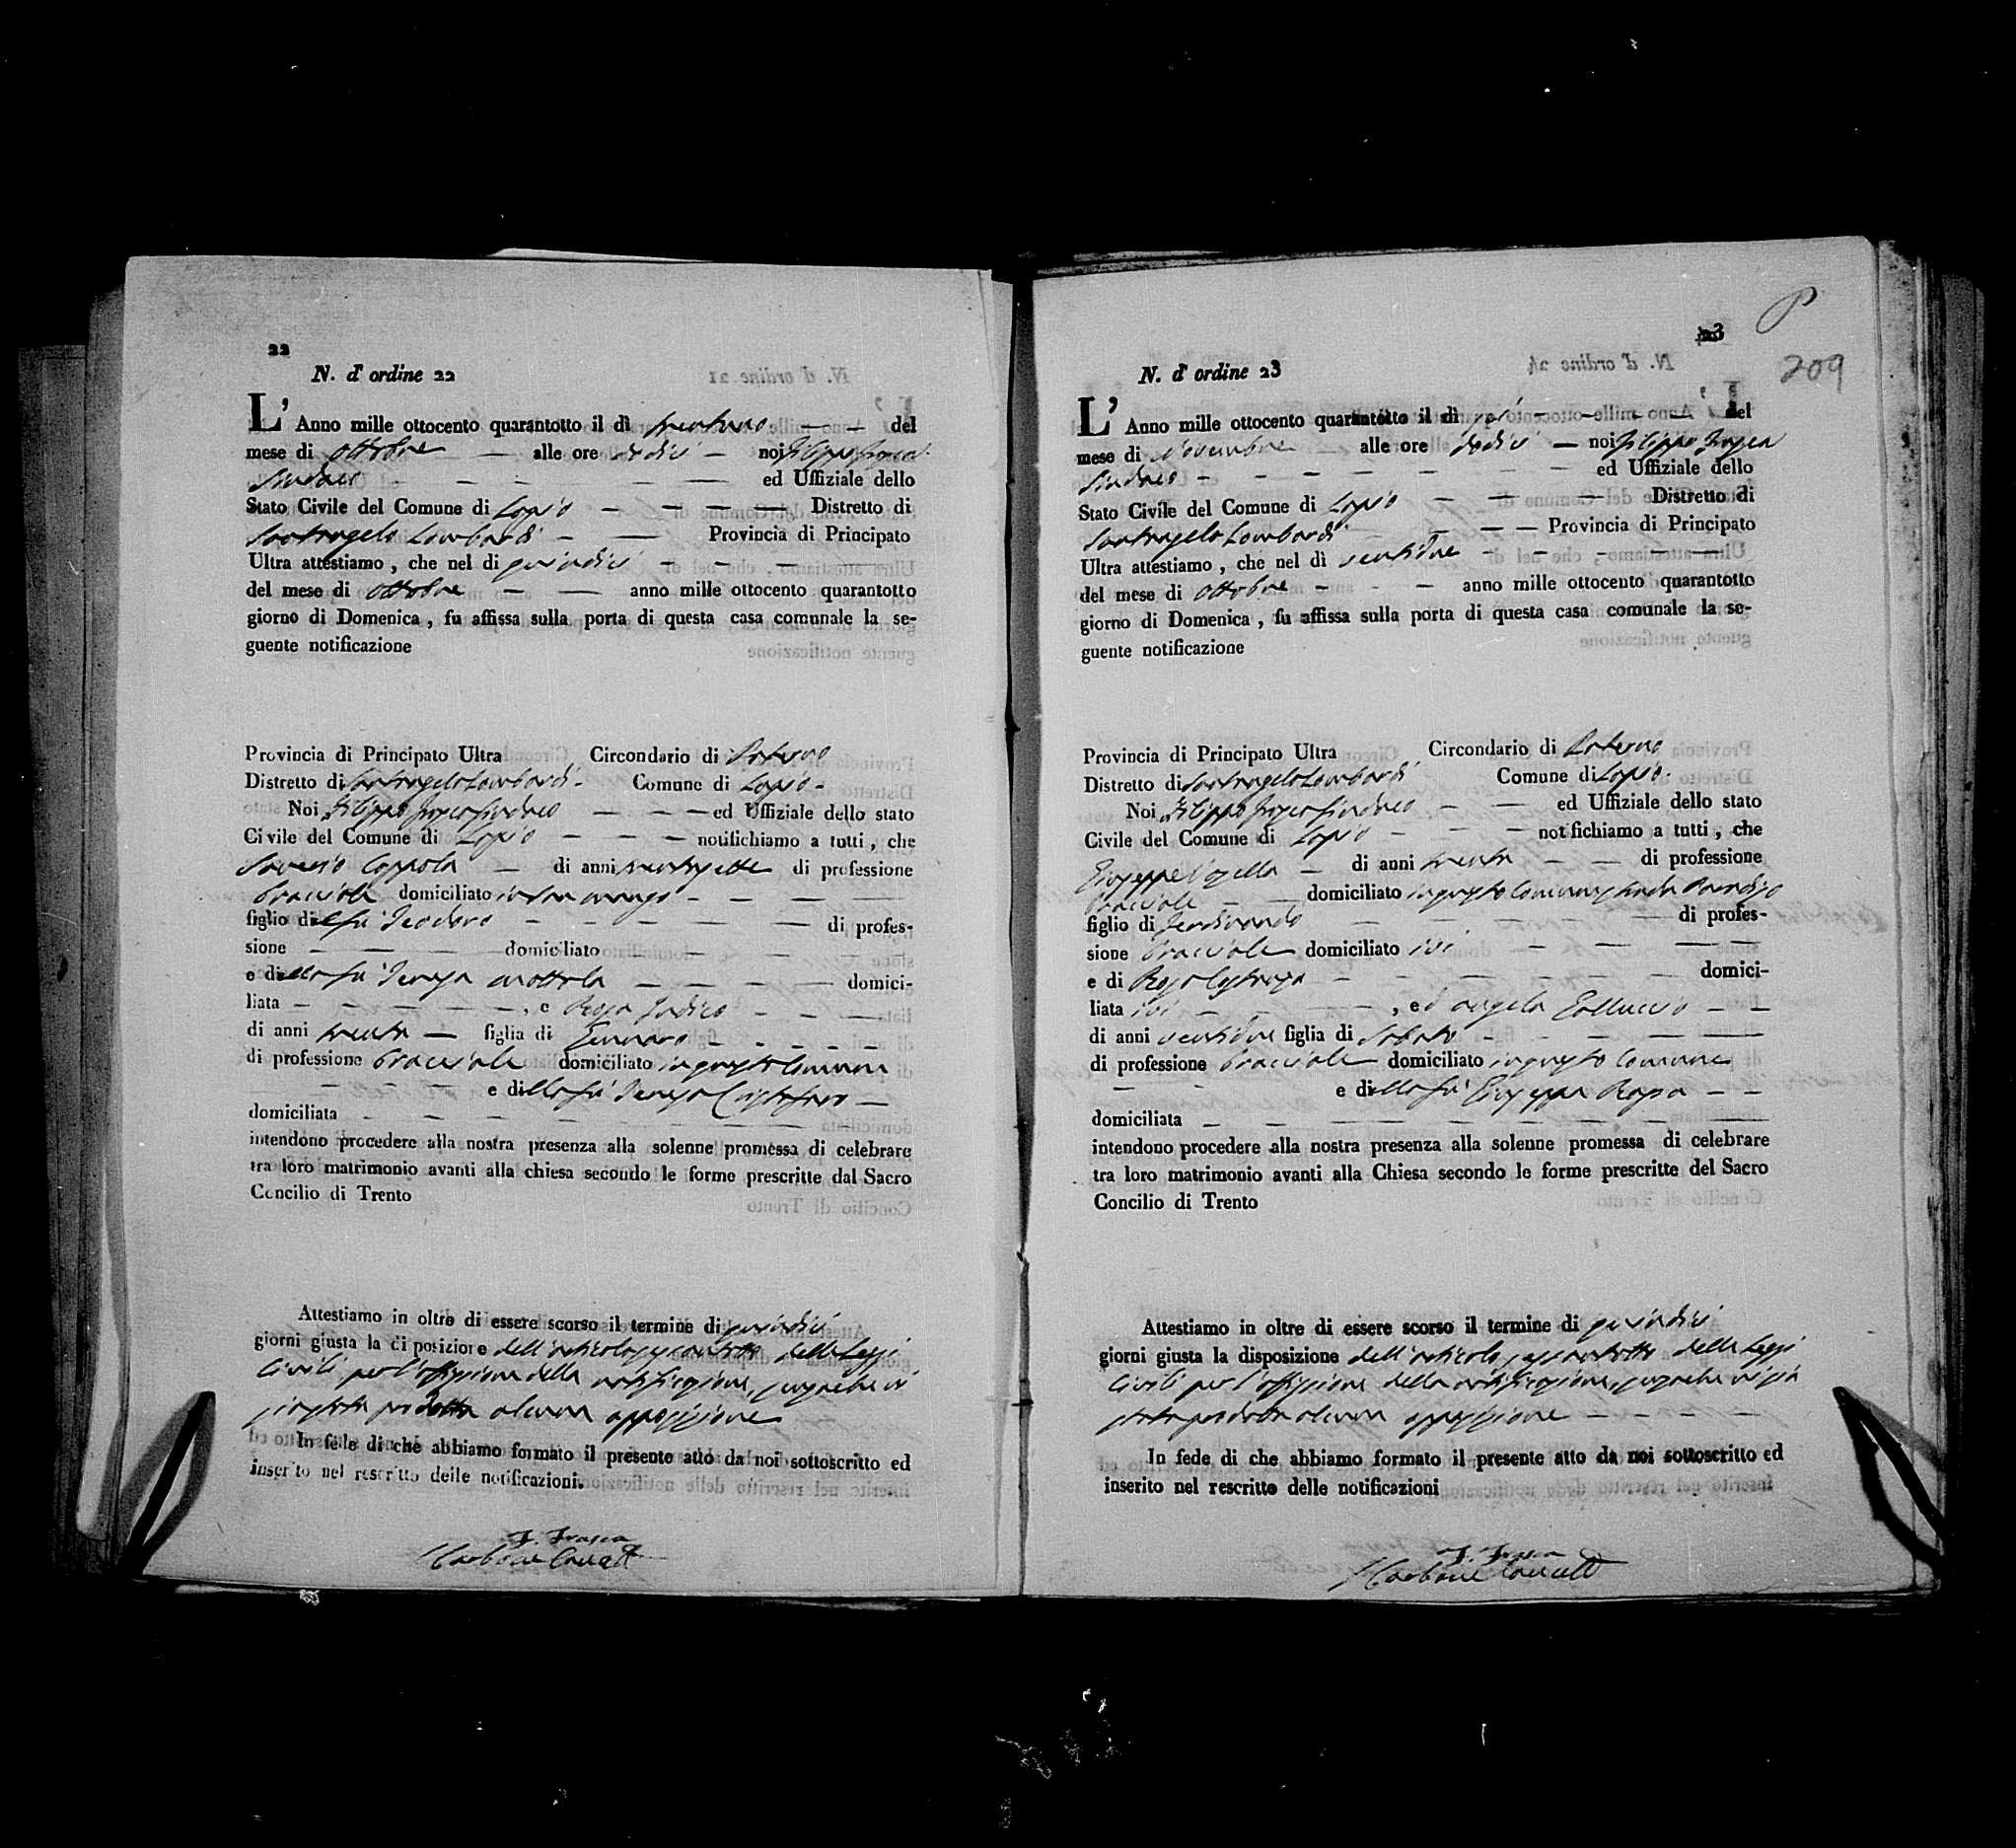 22
N. d' ordine 22
L' Anno mille ottocento quarantotto il dì trentuno del
mese di ottobre alle ore dodici noi Filippo Frasca
Sindaco ed Uffiziale dello
Stato Civile del Comune di Lapio Distretto di
Santangelo Lombardi Provincia di Principato
Ultra attestiamo, che nel dì quindici
del mese di ottobre anno mille ottocento quarantotto
giorno di Domenica, fu affissa sulla porta di questa casa comunale la se-
guente notificazione
Provincia di Principato Ultra Circondario di Paterno
Distretto di Santangelo Lombardi Comune di Lapio
Noi Filippo Frasca Sindaco ed Uffiziale dello stato
Civile del Comune di Lapio notifichiamo a tutti, che
Saverio Coppola di anni trentasette di professione
bracciale domiciliato in
figlio del fu Teodoro di profes-
sione domiciliato
e della fu Teresa Mottola domici-
liata , e Rosa Iodice
di anni trenta figlia di Gennaro
di professione bracciale domiciliato in questo Comune
e della fu Teresa Cristofaro
domiciliata
intendono procedere alla nostra presenza alla solenne promessa di celebrare
tra loro matrimonio avanti alla chiesa secondo le forme prescritte dal Sacro
Concilio di Trento
Attestiamo in oltre di essere scorso il termine di quindici
giorni giusta la disposizione dell'articolo sessantotto delle Leggi
Civili per l'affissione della notificazione, senza che vi
sia stata prodotta alcuna opposizione
In fede di che abbiamo formato il presente atto da noi sottoscritto ed
inserito nel rescritto delle notificazioni.
F. Frasca
Carbone
23
209
N. d' ordine 23
L' Anno mille ottocento quarantotto il dì sei del
mese di Novembre alle ore dodici noi Filippo Frasca
Sindaco ed Uffiziale dello
Stato Civile del Comune di Lapio Distretto di
Santangelo Lombardi Provincia di Principato
Ultra attestiamo, che nel dì ventidue
del mese di ottobre anno mille ottocento quarantotto
giorno di Domenica, fu affissa sulla porta di questa casa comunale la se-
guente notificazione
Provincia di Principato Ultra Circondario di Paterno
Distretto di Santangelo Lombardi Comune di Lapio
Noi Filippo Frasca Sindaco ed Uffiziale dello stato
Civile del Comune di Lapio notifichiamo a tutti, che
Giuseppe di anni trenta di professione
bracciale domiciliato in questo Comune strada
figlio di Ferdinando di profes-
sione bracciale domiciliato ivi
e di Rosa domici-
liata ivi , ed Angela Galluccio
di anni ventidue figlia di Sabato
di professione bracciale domiciliato in questo Comune
e della fu Giuseppa Rossa
domiciliata
intendono procedere alla nostra presenza alla solenne promessa di celebrare
tra loro matrimonio avanti alla Chiesa secondo le forme prescritte del Sacro
Concilio di Trento
Attestiamo in oltre di essere scorso il termine di quindici
giorni giusta la disposizione dell'articolo sessantotto delle Leggi
Civili per l'affissione della notificazione, senza che vi sia
stata prodotta alcuna opposizione
In fede di che abbiamo formato il presente atto da noi sottoscritto ed
inserito nel rescritto delle notificazioni
F. Frasca
Carbone